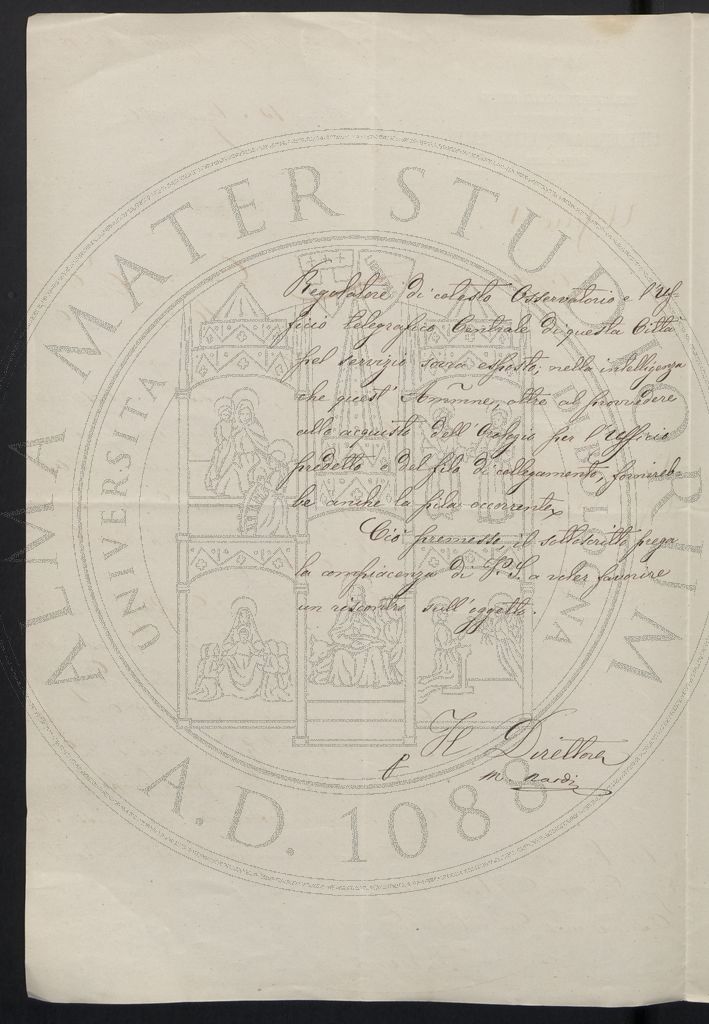 Regolatore di cotesto Osservatorio e l'Uf-
ficio telegrafico Centrale di questa Città
pel servizio sovra esposto; nella intelligenza
che quest' Ammne, oltre al provvedere
allo acquisto dell' Orologio per l'Ufficio
predetto e del filo di collegamento, fornireb
be anche la pila occorrente.
Ciò premesso, il sottoscritto prega
la compiacenza di V.S. a voler favorire
un riscontro sull' oggetto.
Il Direttore
M. Nardi
ALMA MATER STUDIORUM
UNIVERSITA DI BOLOGNA
LIBERTAS
A.D. 1088